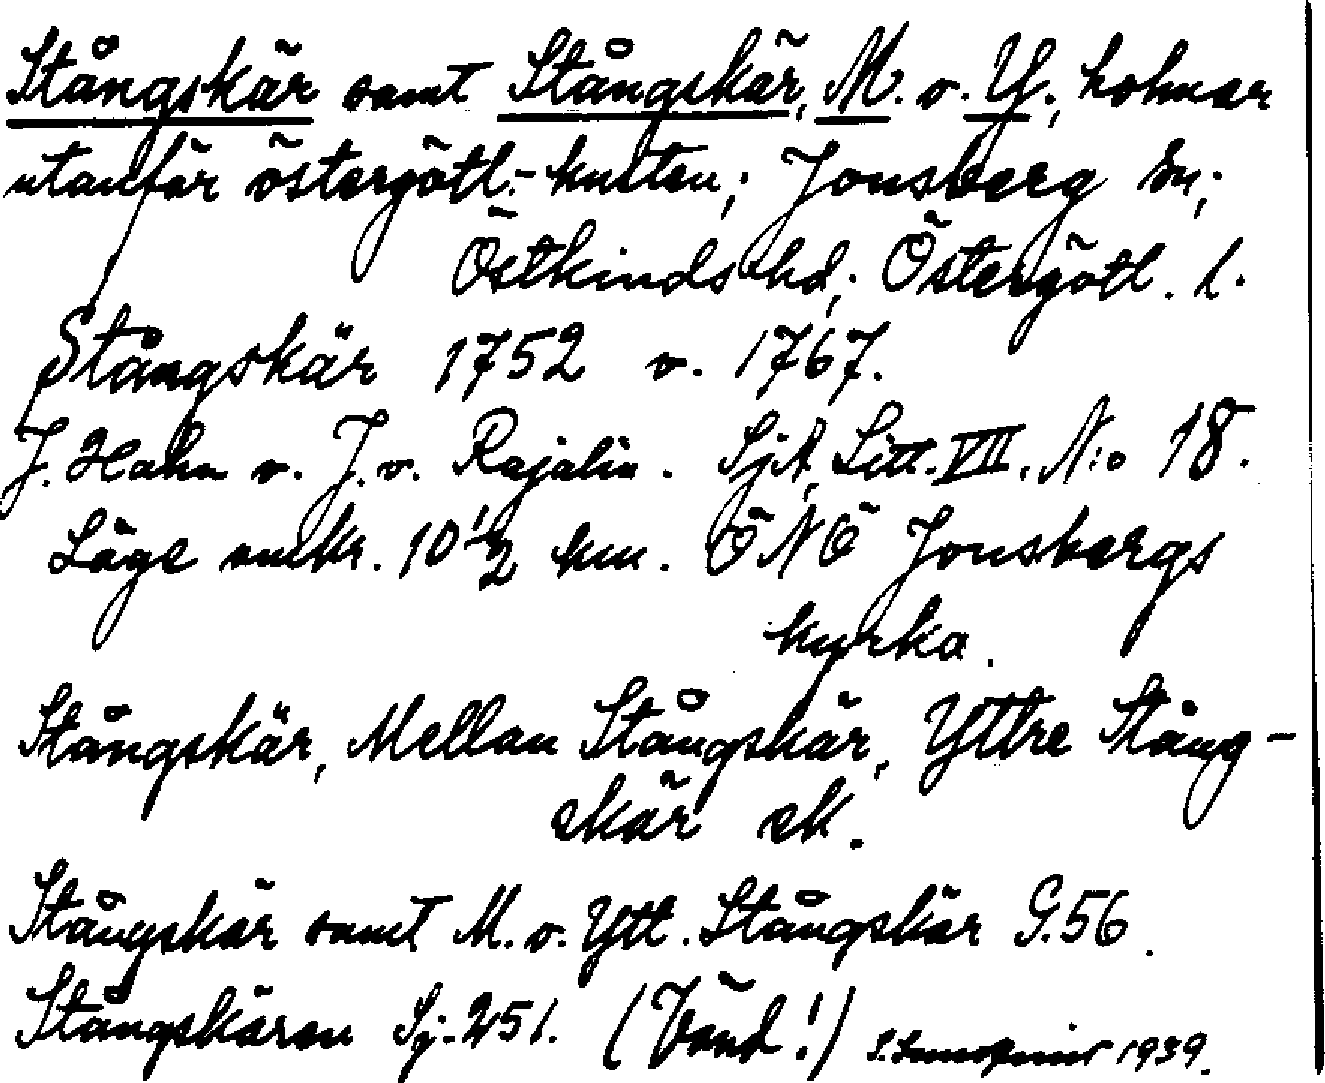 Stångskär samt Stångskär, M. o. Y., holmar
utanför östergötl.-kusten; Jonsberg sn;
Östkinds hd; Östergötl. l.
Stångskär 1752 o. 1767.
J. Hahn o. J. v. Rajalin. SjA, Litt. VII. N:o 18.
Läge omkr. 10 1/2 km. ÖNÖ Jonsbergs
kyrka.
Stångskär, Mellan Stångskär, Yttre Stång-
skär ek.
Stångskär samt M. o. Ytt. Stångskär G.56.
Stångskären Sj. 251. (Vänd!) 1939.